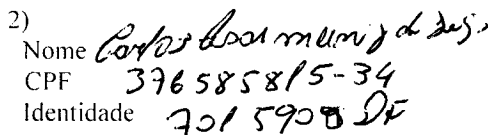 2)
Nome Carlos
CPF 376585815-34
Identidade 701 5908 DF